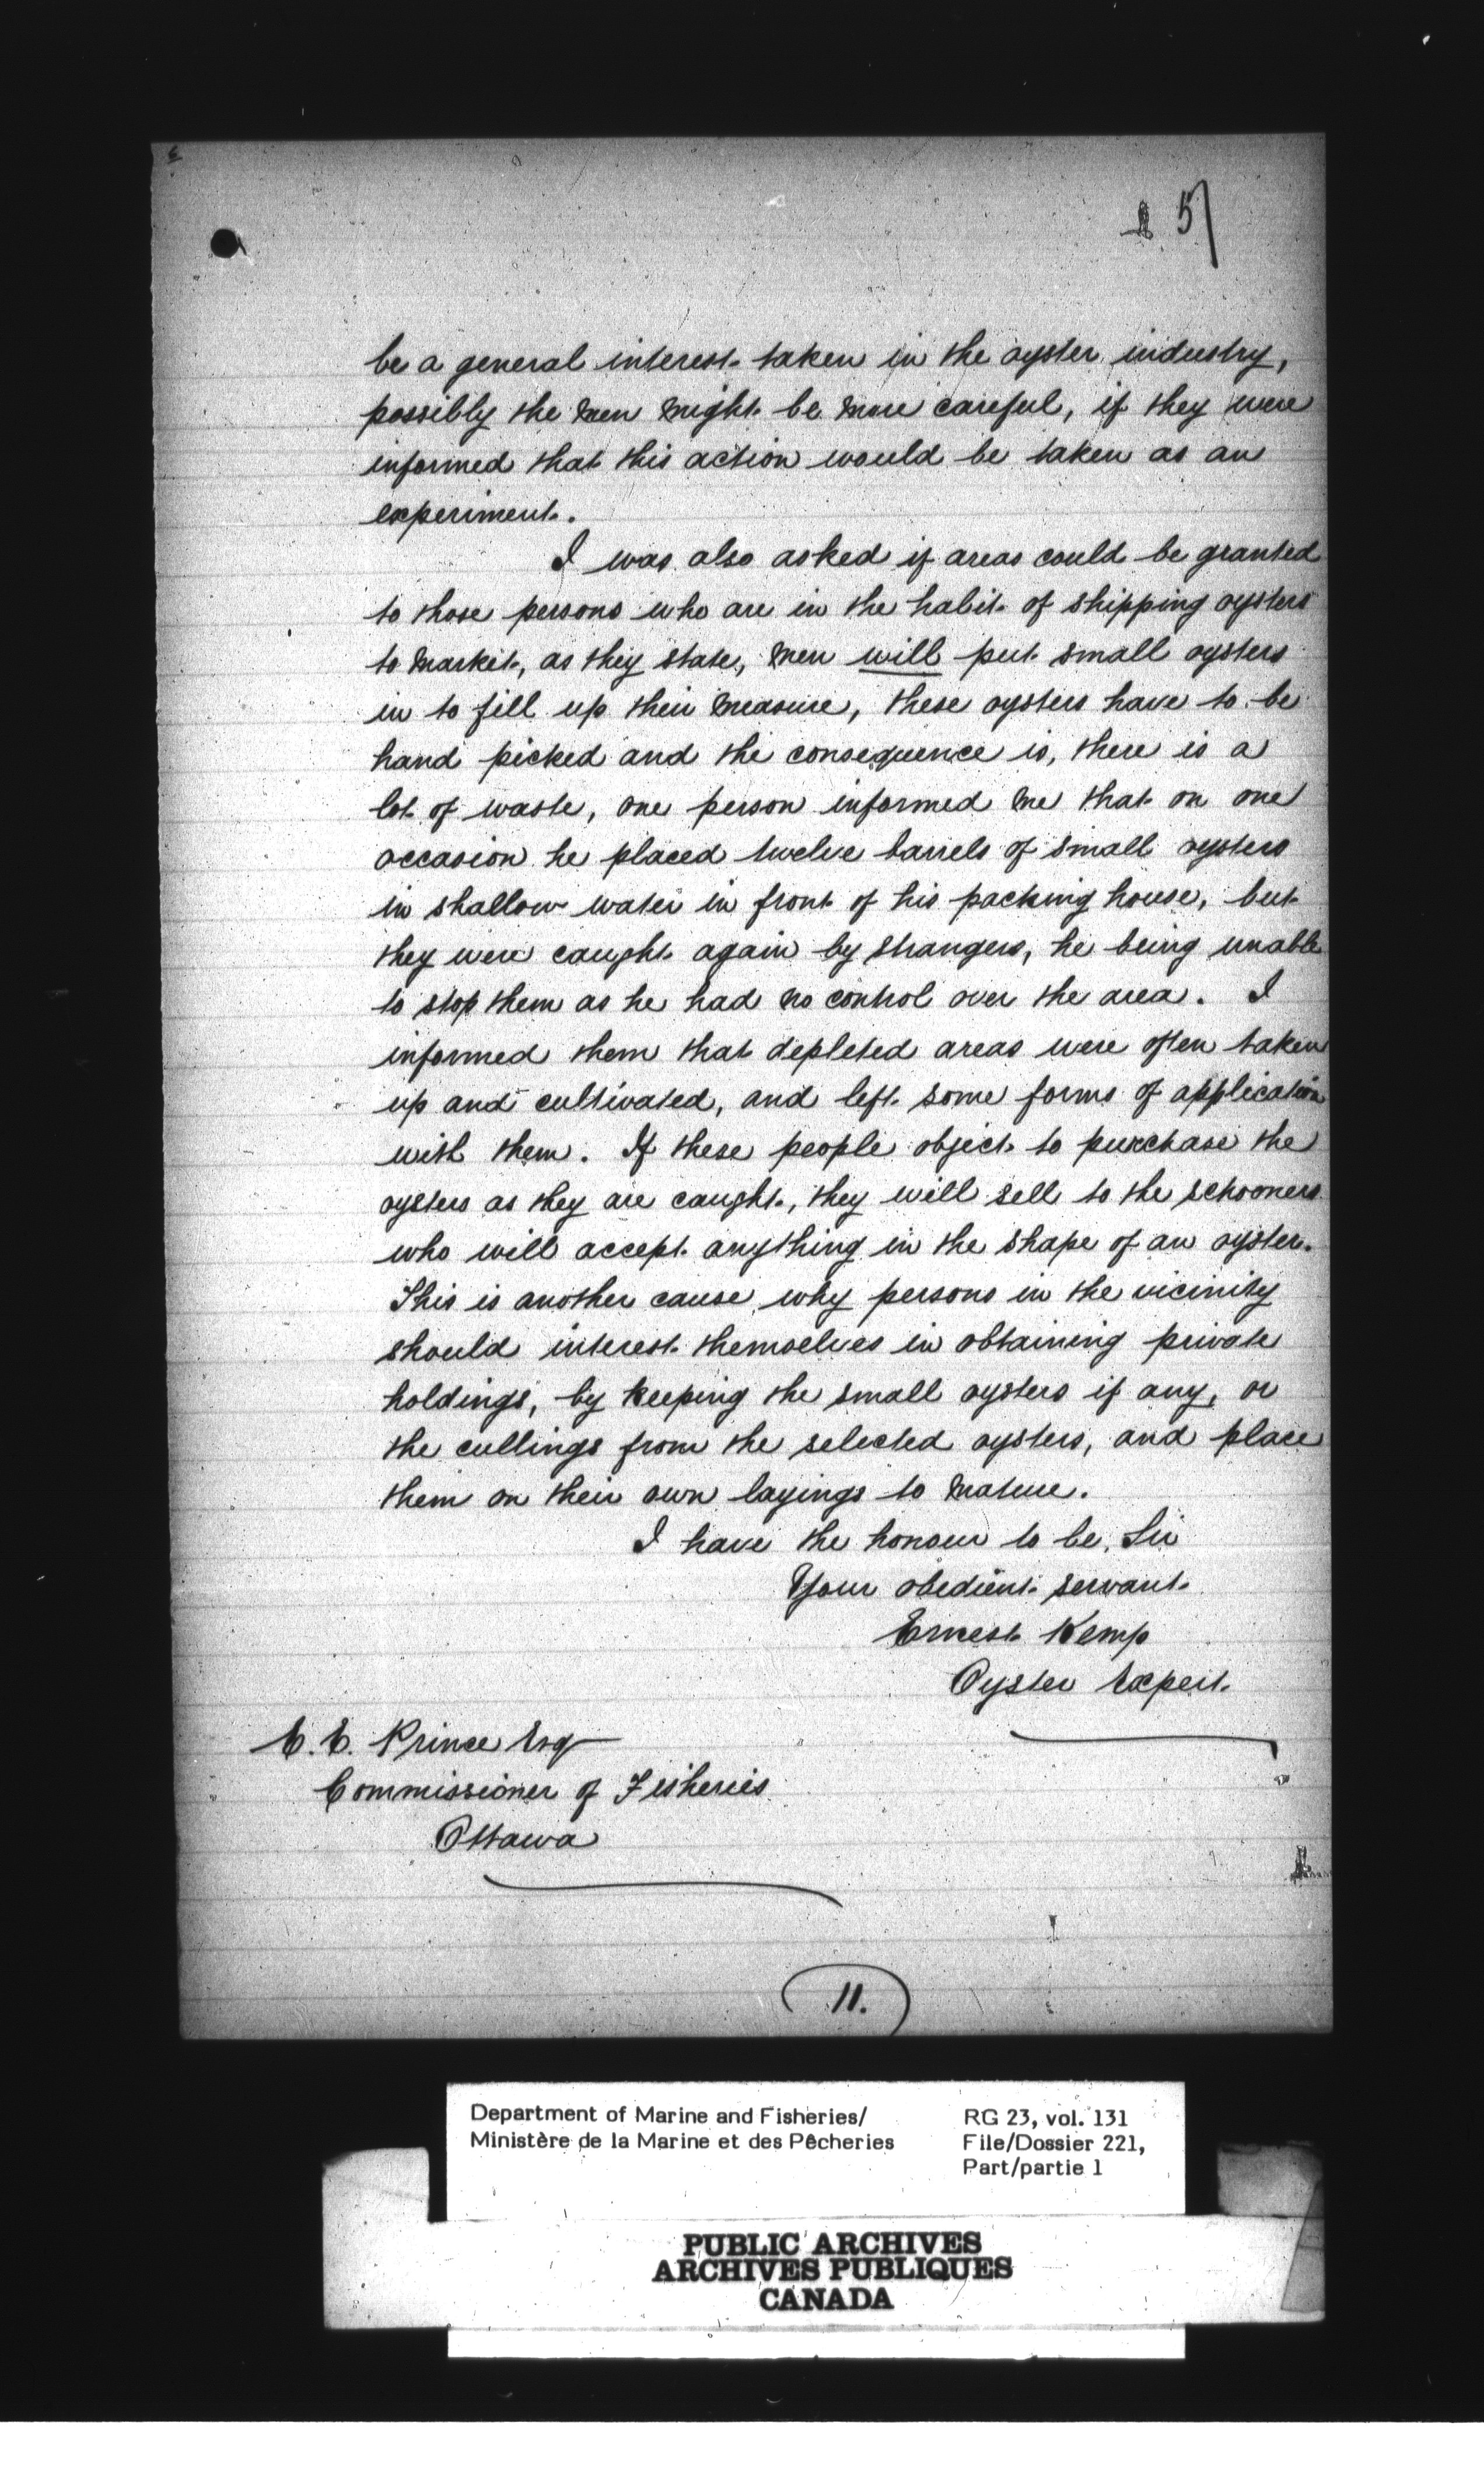 5
be a general interest taken in the oyster industry,
possibly the men might be more careful, if they were
informed that this action would be taken as an
experiment.
I was also asked if areas could be granted
to those persons who are in the habit of shipping oysters
to market, as they state, men will put small oysters
in to fill up their measure, these oysters have to be
hand picked and the consequence is, there is a
lot of waste, one person informed me that on one
occasion he placed twelve barrels of small oysters
in shallow water in front of his packing house, but
they were caught again by strangers, he being unable
to stop them as he had no control over the area. I
informed them that depleted areas were often taken
up and cultivated, and left some forms of application
with them. If these people object to purchase the
oysters as they are caught, they will sell to the schooners
who will accept anything in the shape of an oyster.
This is another cause why persons in the vicinity
should interest themselves in obtaining private
holdings, by keeping the small oysters if any, or
the cullings from the selected oysters, and place
them on their own layings to mature.
I have the honour to be, Sir
Your obedient servant
Ernest Kemp
Oyster Expert.
E. E. Prince Esq
Commissioner of Fisheries
Ottawa
11.
Department of Marine and Fisheries/
Ministère de la Marine et des Pêcheries
RG 23, vol. 131
File/Dossier 221,
Part/partie 1
PUBLIC ARCHIVES
ARCHIVES PUBLIQUES
CANADA